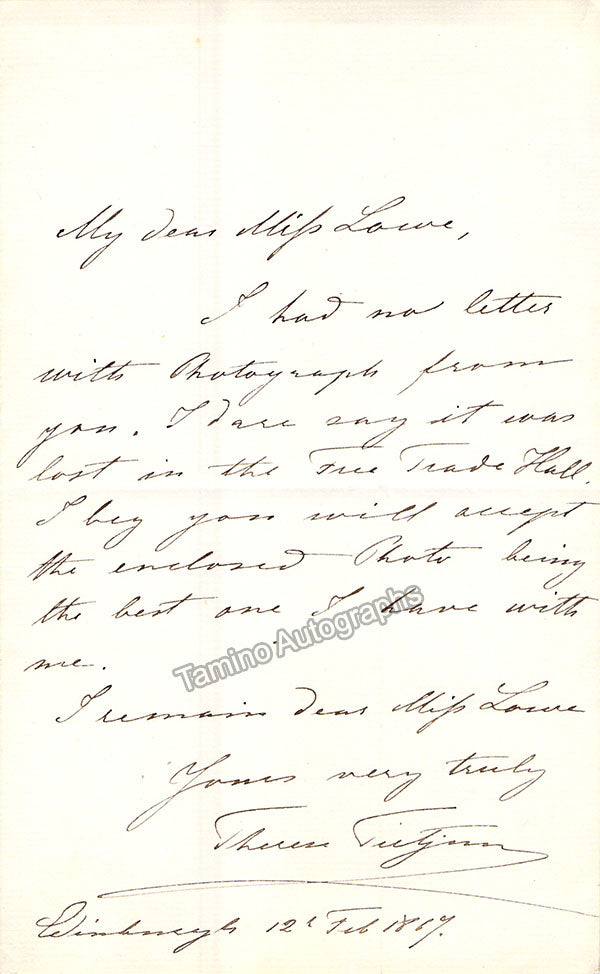 My dear Miss Lowe,
I had no letter
with Photograph from
you. I dare say it was
lost in the Free Trade Hall.
I beg you will accept
the enclosed Photo being
the best one I have with
me.
Tamino Autographs
I remain dear Miss Lowe
Yours very truly
Therese Tietjens
Edinburgh 12th Feb 1867.